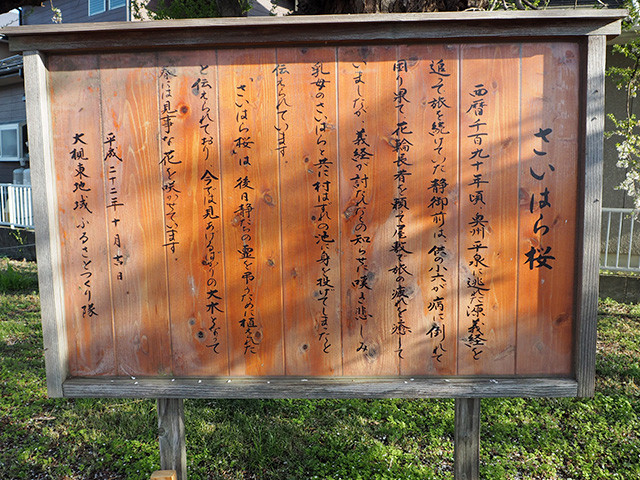 さいはら桜
西暦千百九十年頃、奥州平泉に逃れた源義経を
追って旅を続けていた静御前は、供の小六が病に倒れて
困り果て、花輪長者を頼って屋敷で旅の疲れを癒して
いましたが、義経が討たれたとの知らせに嘆き悲しみ、
乳母のさいはらと共に村はずれの池に身を投げてしまったと
伝えられています。
さいはら桜は、後日静たちの霊を弔うために植えられた
と伝えられており、今では見あげるばかりの大木となって
春には見事な花を咲かせています。
平成二十二年十月吉日
大槻東地域ふるさとづくり隊